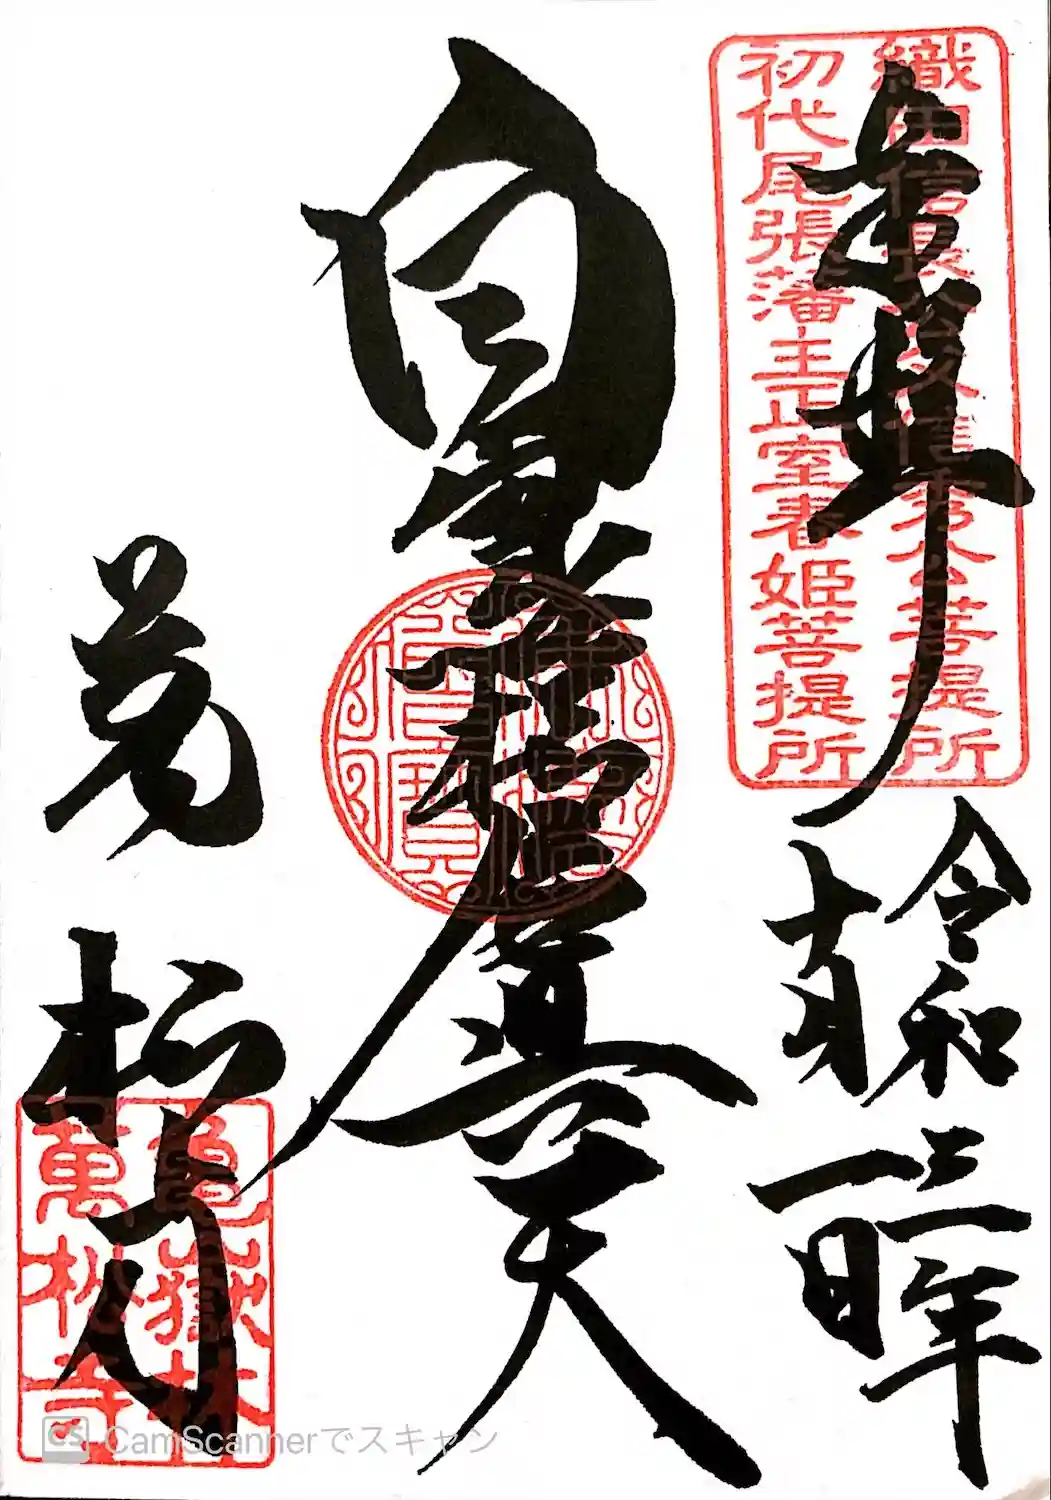 奉拝
織田信長公父信秀公菩提所
初代尾張藩主正室春姫菩提所
令和三年
十一月一日
白雪稲荷尊天
萬松寺
亀嶽林
萬松寺
CamScannerでスキャン